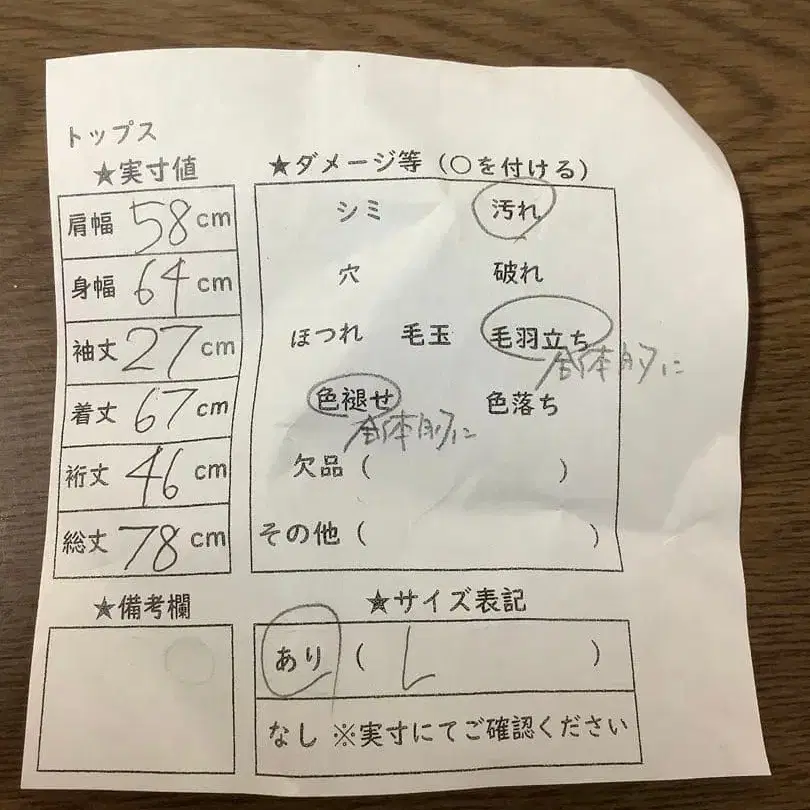 トップス
★実寸値
肩幅 58 cm
身幅 64 cm
袖丈 27 cm
着丈 67 cm
裄丈 46 cm
総丈 78 cm
★備考欄
★ダメージ等(○を付ける)
シミ 汚れ
穴 破れ
ほつれ 毛玉 毛羽立ち
全体的に
色褪せ 色落ち
全体的に
欠品( )
その他( )
★サイズ表記
あり( L )
なし ※実寸にてご確認ください